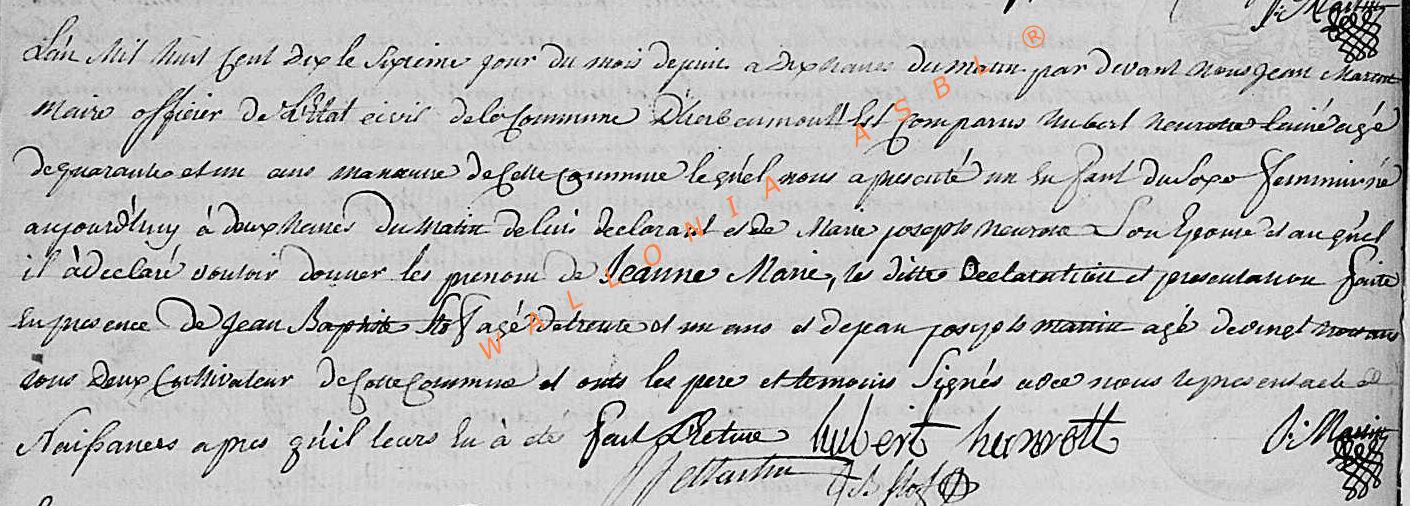 J: Martin
L'an Mil huit Cent Dix le Sixieme jour du mois de juin a dix heures du matin par devant Nous Jean Martin
Maire officier de L'Etat civil de la Commune D'herbeumont Est Comparus hubert heurotte lainé agé
de quarante et un ans manœuvre de Cette Commune lequ'el nous a presenté un En fant du Sexe feminin né
aujourd'huy à deux heures Du matin de lui declarant et de Marie joseph Son Epouse et auquel
il à declaré vouloir donner les prenom de Jeanne Marie, les ditte Declaration et presentation faite
En presence De Jean Baptiste Stof agé de trente et un ans et de jean joseph martin agé de vingt
tous Deux Cultivateur de Cette Commune et onts les pere et temoins Signés avec nous le present acte de
Naissances apres qu'il leurs En à eté fait Lecture hubert heurott J: Martin
JJ Martin J B Stof
WALLONIA ASBL ®